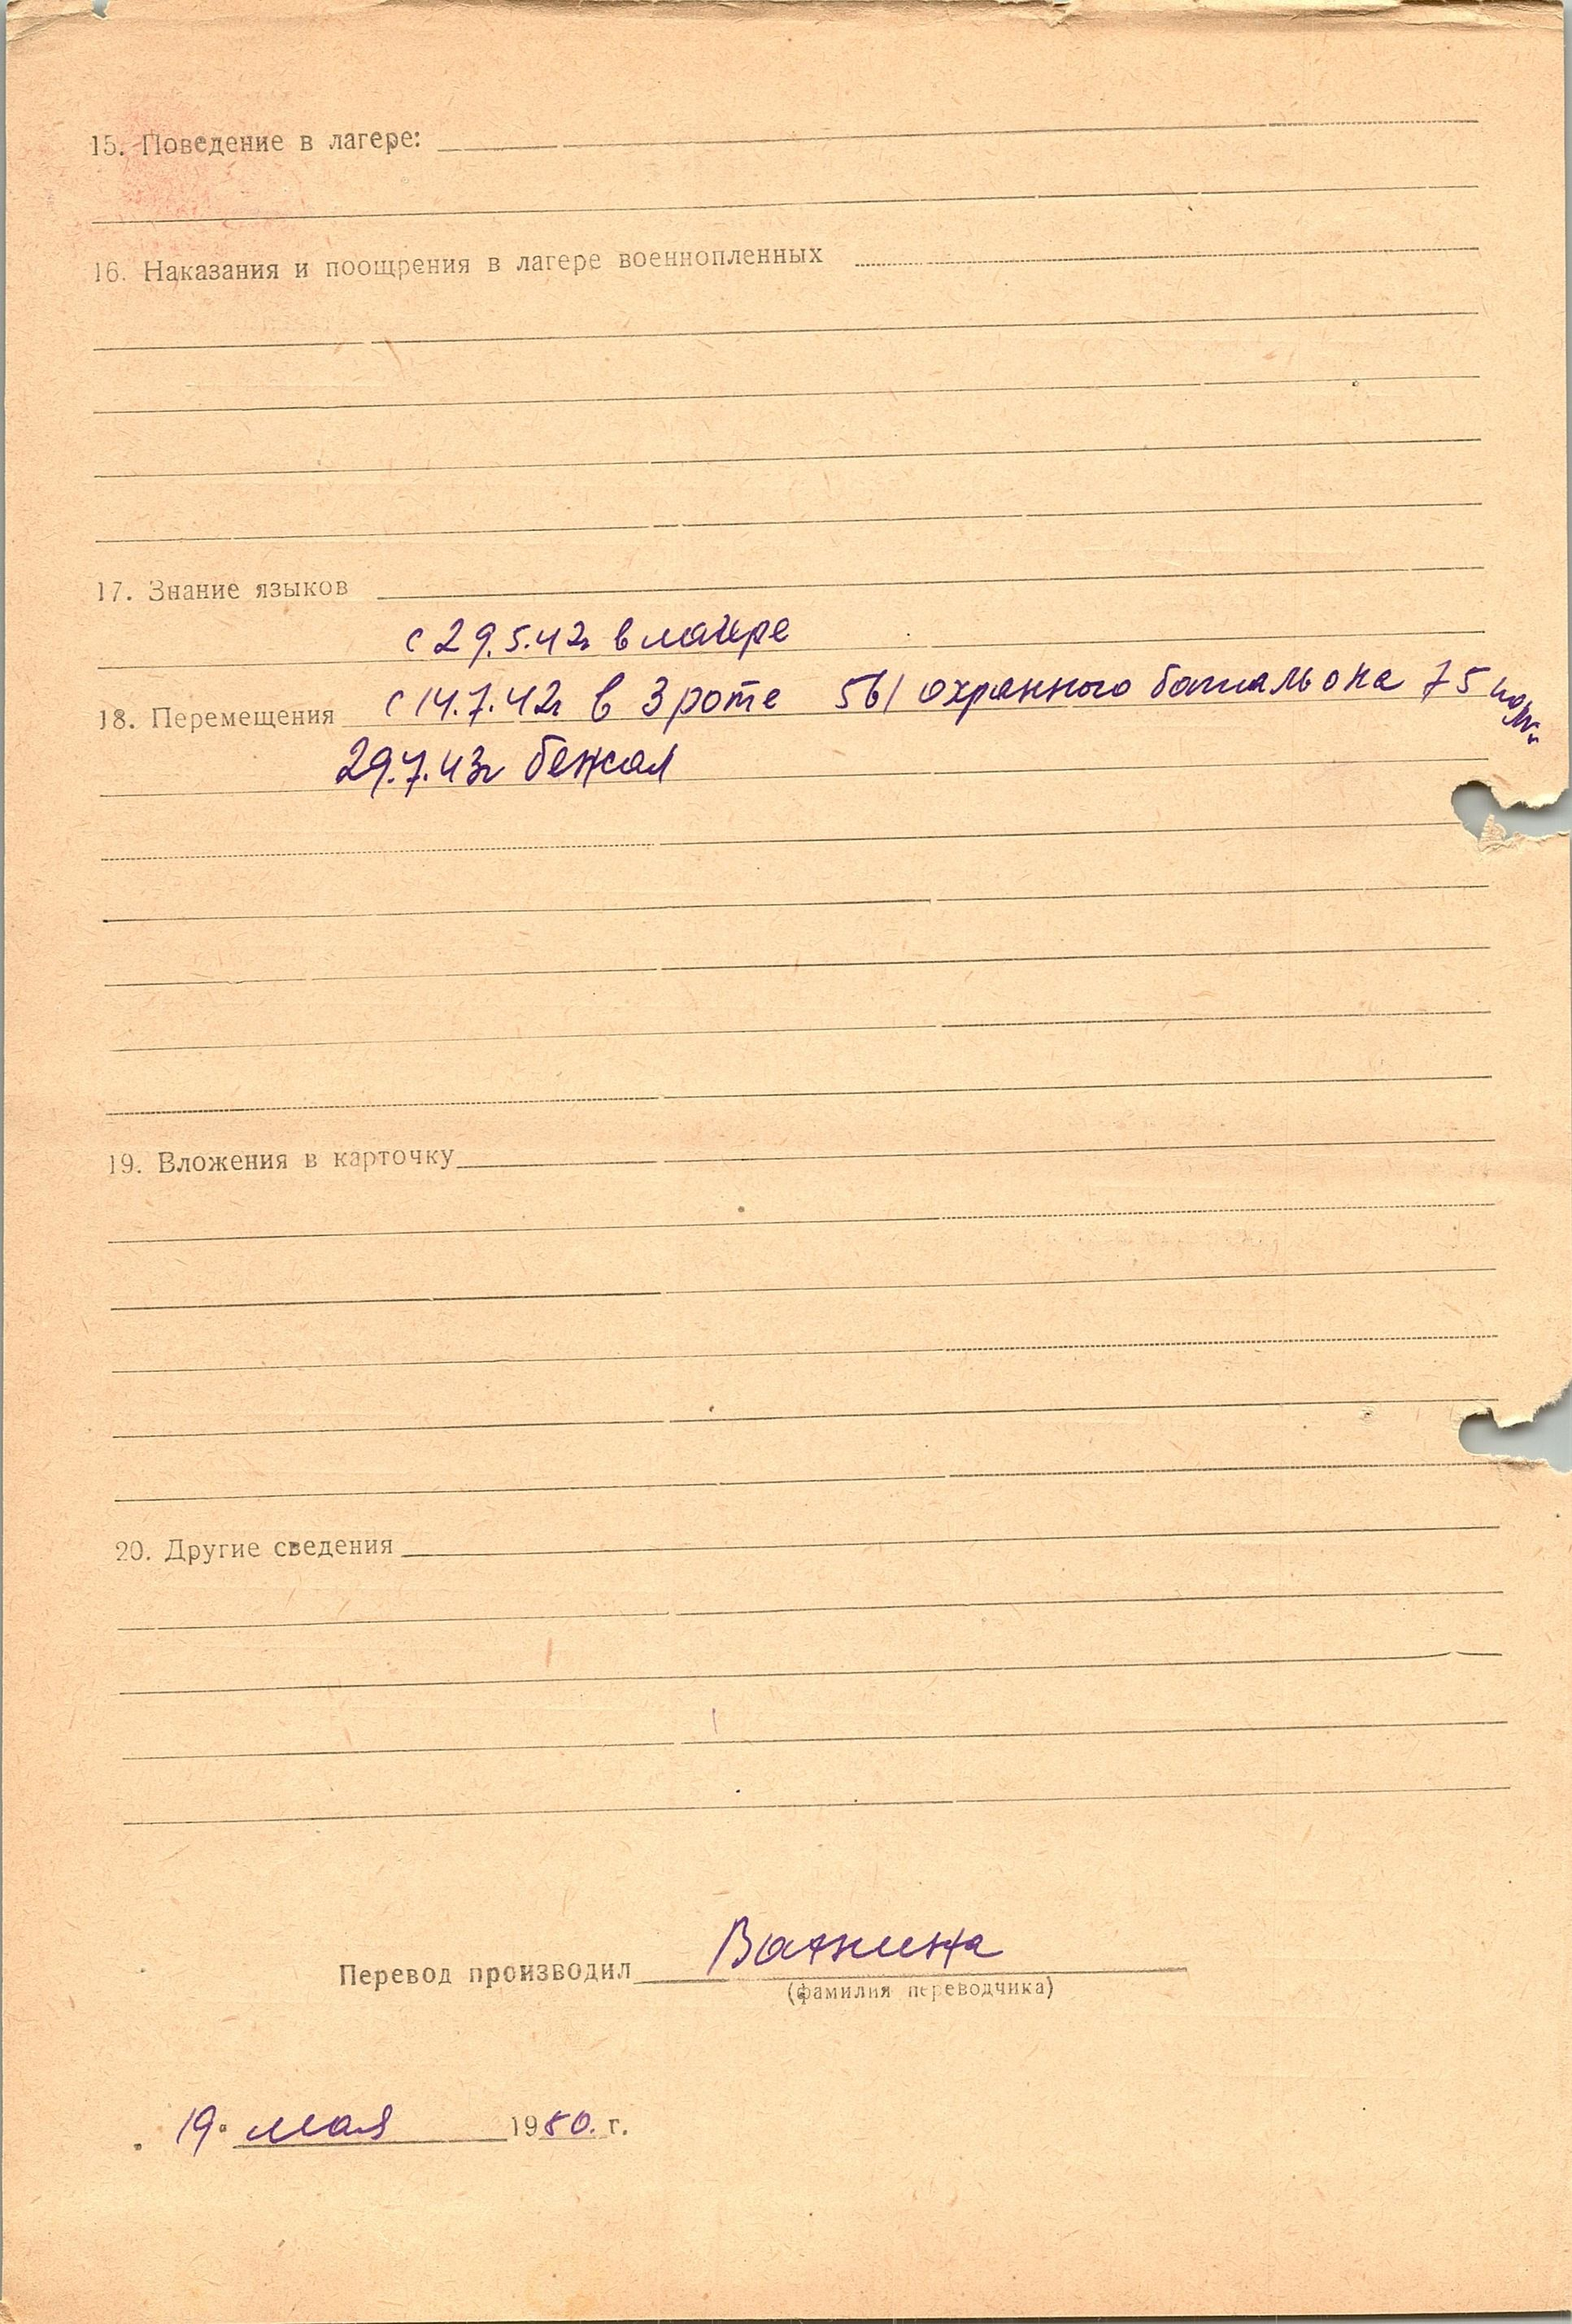 15. Поведение в лагере:
16. Наказания и поощрения в лагере военнопленных
17. Знание языков
с 29.5.42г в лагере
18. Перемещения с 14.7.42г в 3 роте 561 охранного батальона 75 полк.
29.7.43г бежал
19. Вложения в карточку
20. Другие сведения
Перевод производил
(фамилия переводчика)
19. мая 1980. г.